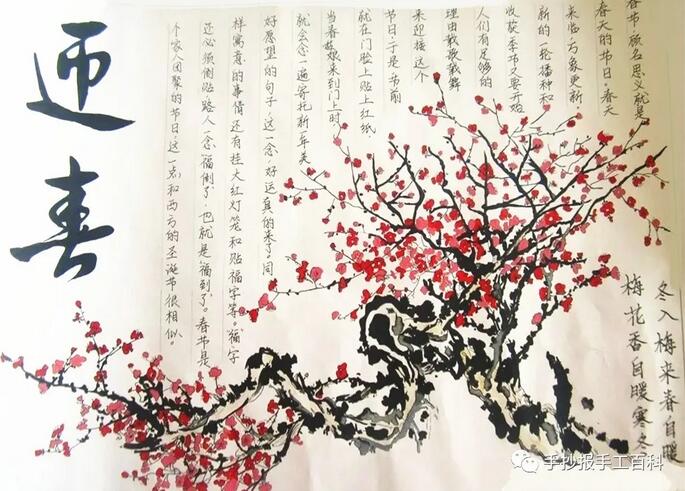 迎春
春节,顾名思义就是
春天的节日。春天
来临,万象更新,
新的一轮播种和
收获季节又要开始
人们有足够的
理由载歌载舞
来迎接这个
节日。于是,节前
就在门脸上贴上红纸
当春姑娘来到门上时,
就会念一遍寄托新一年美
好愿望的句子,这一念,好运真的来了。同
样寓意的事情还有挂大红灯笼和贴福字等。福字
还必须倒贴,路人一念福倒了,也就是福到了。春节是
个家人团聚的节日,这一点和西方的圣诞节很相似。
冬入梅来春自暖
梅花香自暖寒冬
手抄报手工百科